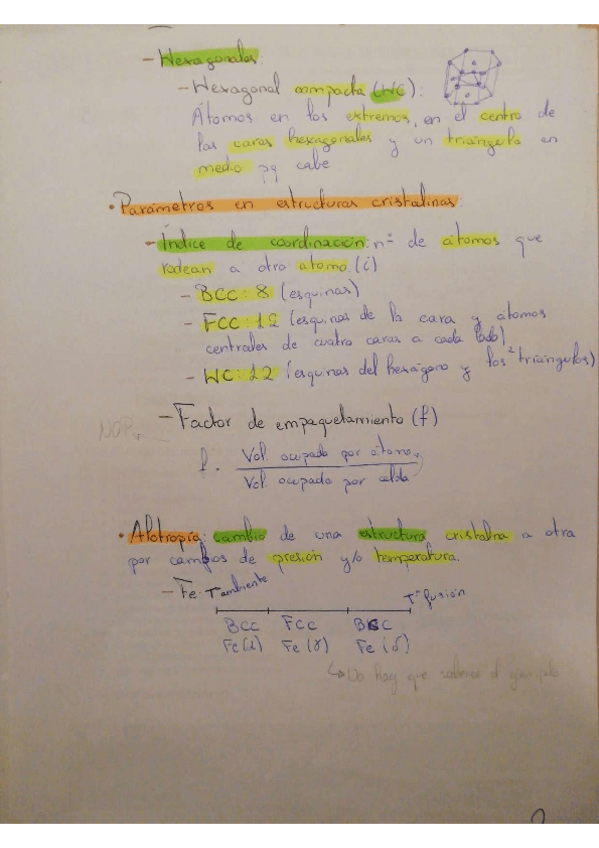 - Hexagonales:
- Hexagonal compacta (HC):
Átomos en los extremos, en el centro de
las caras hexagonales y un triángulo en
medio pq cabe
• Parámetros en estructuras cristalinas:
- Índice de coordinación: nº de átomos que
rodean a otro átomo. (i)
- BCC: 8 (esquinas)
- FCC: 12 (esquinas de la cara y átomos
centrales de cuatro caras a cada lado)
- HC: 12 (esquinas del hexágono y los 2 triángulos)
- Factor de empaquetamiento (f)
NOP
f. Vol. ocupado por átomo
Vol. ocupado por celda
• Alotropía: cambio de una estructura cristalina a otra
por cambios de presión y/o temperatura.
- Fe: Tambiente Tª fusión
BCC FCC BCC
Fe(α) Fe(γ) Fe(δ)
↳ No hay que saberse el ejemplo